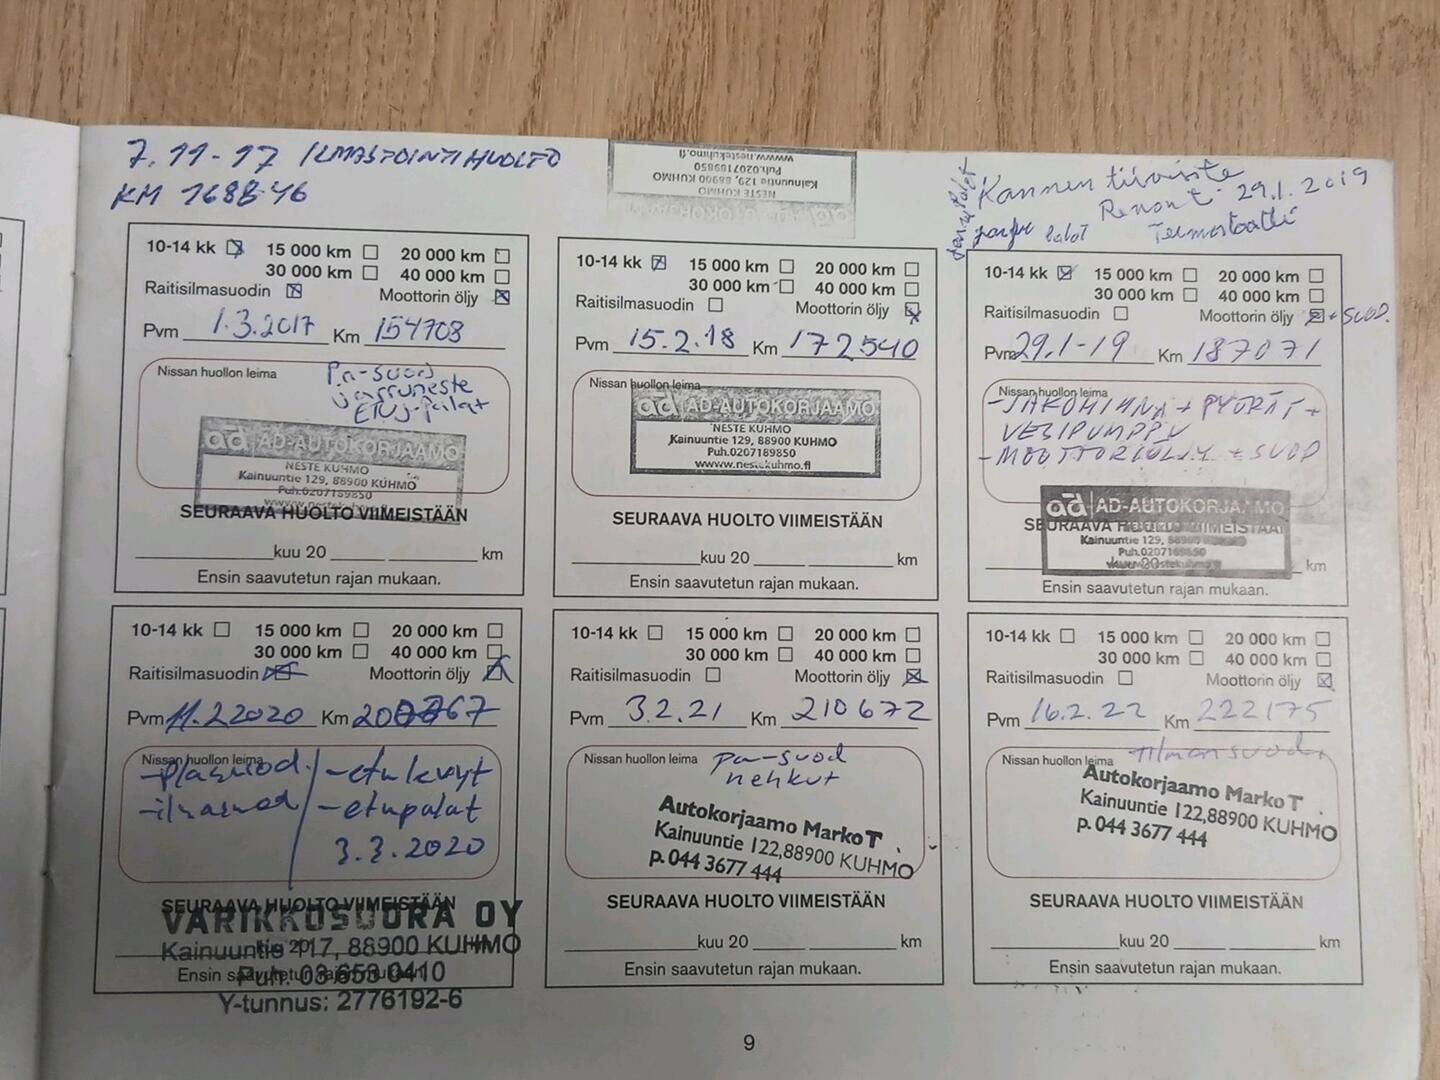 7.11-17 ILMASTOINTIHUOLTO
KM 168846
www.nestekuhmo.fi
Puh.0207189850
Kainuuntie 129, 88900 KUHMO
NESTE KUHMO
ad AD-AUTOKORJAAMO
Kannen tiiviste
Remont. 29.1.2019
Jarrupalat
palat Termostaatti
10-14 kk 15 000 km 20 000 km
30 000 km 40 000 km
Raitisilmasuodin Moottorin öljy
Pvm 1.3.2017 Km 154708
Nissan huollon leima Pa-suod
jarruneste
ETU-palat
ad AD-AUTOKORJAAMO
NESTE KUHMO
Kainuuntie 129, 88900 KUHMO
Puh.0207189850
www.nestekuhmo.fi
SEURAAVA HUOLTO VIIMEISTÄÄN
kuu 20 km
Ensin saavutetun rajan mukaan.
10-14 kk 15 000 km 20 000 km
30 000 km 40 000 km
Raitisilmasuodin Moottorin öljy
Pvm 15.2.18 Km 172540
Nissan huollon leima
ad AD-AUTOKORJAAMO
NESTE KUHMO
Kainuuntie 129, 88900 KUHMO
Puh.0207189850
www.nestekuhmo.fi
SEURAAVA HUOLTO VIIMEISTÄÄN
kuu 20 km
Ensin saavutetun rajan mukaan.
10-14 kk 15 000 km 20 000 km
30 000 km 40 000 km
Raitisilmasuodin Moottorin öljy + SUOD.
Pvm 29.1-19 Km 187071
Nissan huollon leima
-JAKOHIHNA + PYÖRÄT +
VESIPUMPPU
-MOOTTORIÖLJY + SUOD
ad AD-AUTOKORJAAMO
SEURAAVA HUOLTO VIIMEISTÄÄN
Kainuuntie 129, 88900 KUHMO
Puh.0207189850
www.nestekuhmo.fi
kuu 20 km
Ensin saavutetun rajan mukaan.
10-14 kk 15 000 km 20 000 km
30 000 km 40 000 km
Raitisilmasuodin Moottorin öljy
Pvm 11.2.2020 Km
Nissan huollon leima
-etupalat
3.3.2020
SEURAAVA HUOLTO VIIMEISTÄÄN
VARIKKOSUORA OY
Kainuuntie 117, 88900 KUHMO
kuu 20
Ensin saavutetun rajan mukaan.
Puh. 08 653 0410
Y-tunnus: 2776192-6
10-14 kk 15 000 km 20 000 km
30 000 km 40 000 km
Raitisilmasuodin Moottorin öljy
Pvm 3.2.21 Km 210672
Nissan huollon leima pa-suod
hehkut
Autokorjaamo Marko T
Kainuuntie 122,88900 KUHMO
p. 044 3677 444
SEURAAVA HUOLTO VIIMEISTÄÄN
kuu 20 km
Ensin saavutetun rajan mukaan.
10-14 kk 15 000 km 20 000 km
30 000 km 40 000 km
Raitisilmasuodin Moottorin öljy
Pvm 16.2.22 Km 222175
Nissan huollon leima ilmansuod.
Autokorjaamo Marko T
Kainuuntie 122,88900 KUHMO
p. 044 3677 444
SEURAAVA HUOLTO VIIMEISTÄÄN
kuu 20 km
Ensin saavutetun rajan mukaan.
9